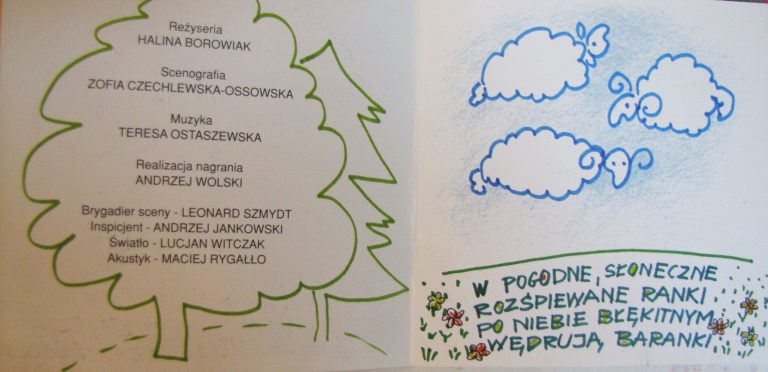 Reżyseria
HALINA BOROWIAK
Scenografia
ZOFIA CZECHLEWSKA-OSSOWSKA
Muzyka
TERESA OSTASZEWSKA
Realizacja nagrania
ANDRZEJ WOLSKI
Brygadier sceny - LEONARD SZMYDT
Inspicjent - ANDRZEJ JANKOWSKI
Światło - LUCJAN WITCZAK
Akustyk - MACIEJ RYGAŁŁO
W POGODNE, SŁONECZNE
ROZŚPIEWANE RANKI
PO NIEBIE BŁĘKITNYM
WĘDRUJĄ BARANKI